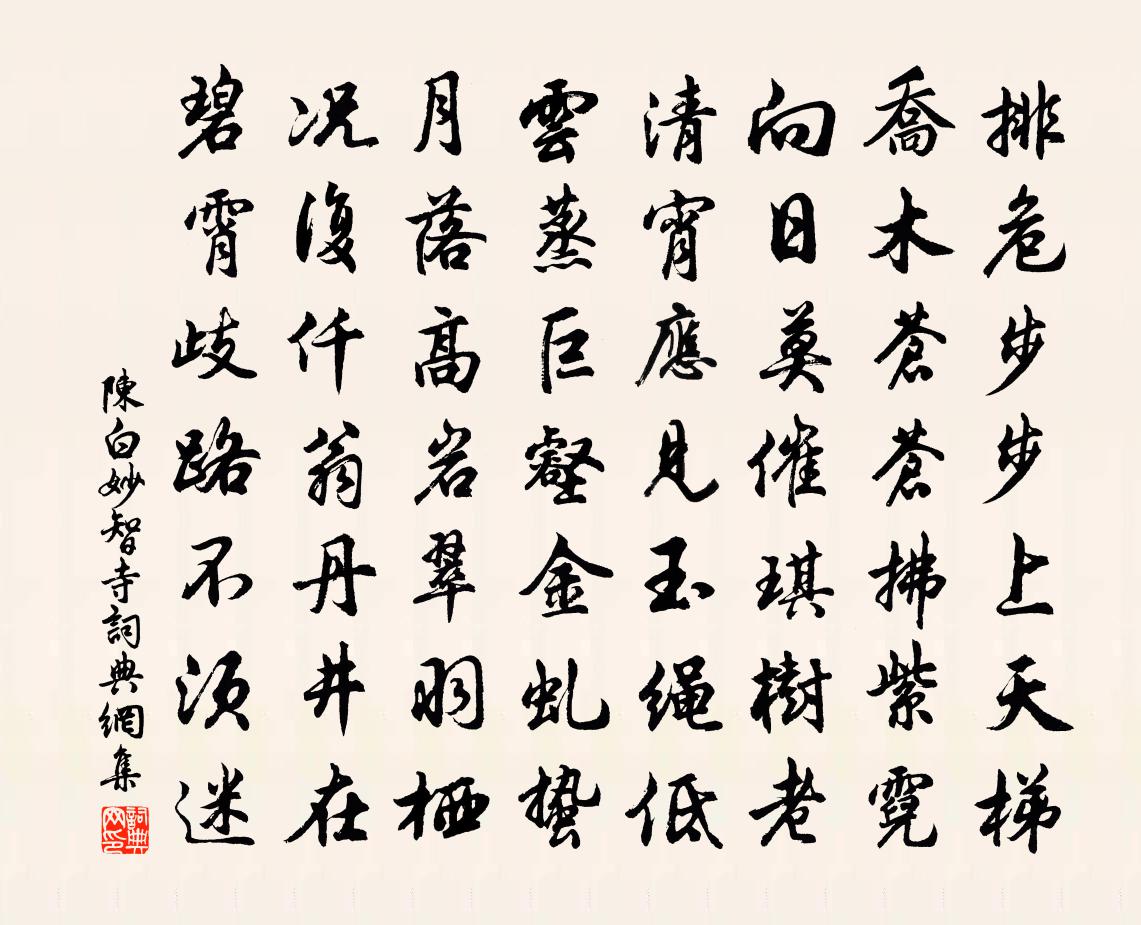 排危步步上天梯
喬木蒼蒼拂紫霓
向日莫催琪樹老
清宵應見玉繩低
雲蒸巨壑金虬蟄
月落高岩翠羽栖
况復仟翁丹井在
碧霄歧路不須迷
陳白妙智寺詞典網集
詞典网印